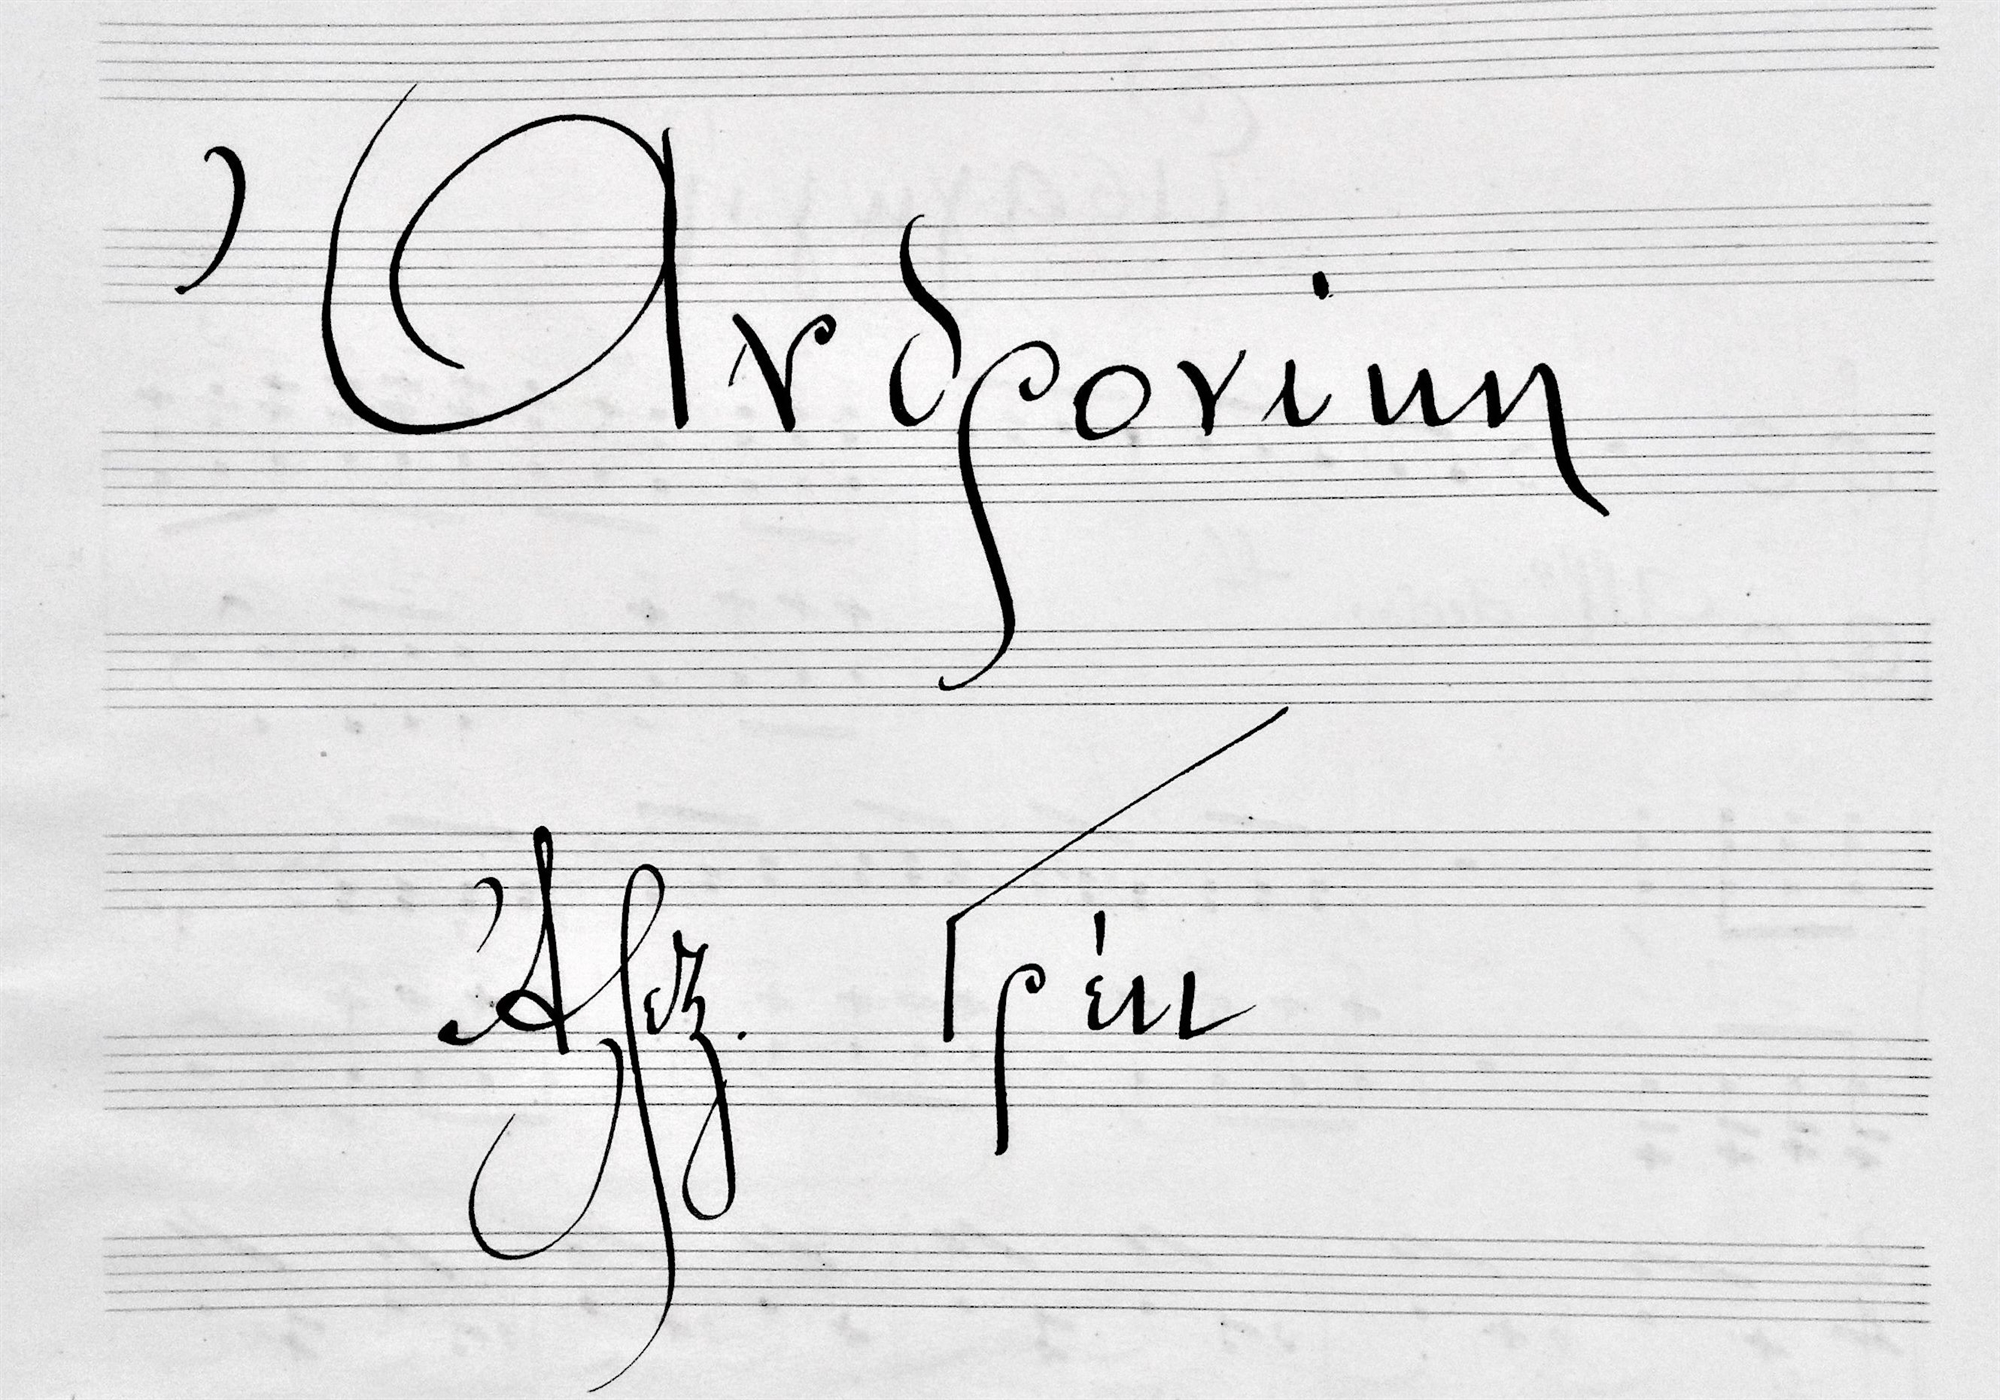 Ἀνδρονίκη
Ἀλεξ. Γρέκ